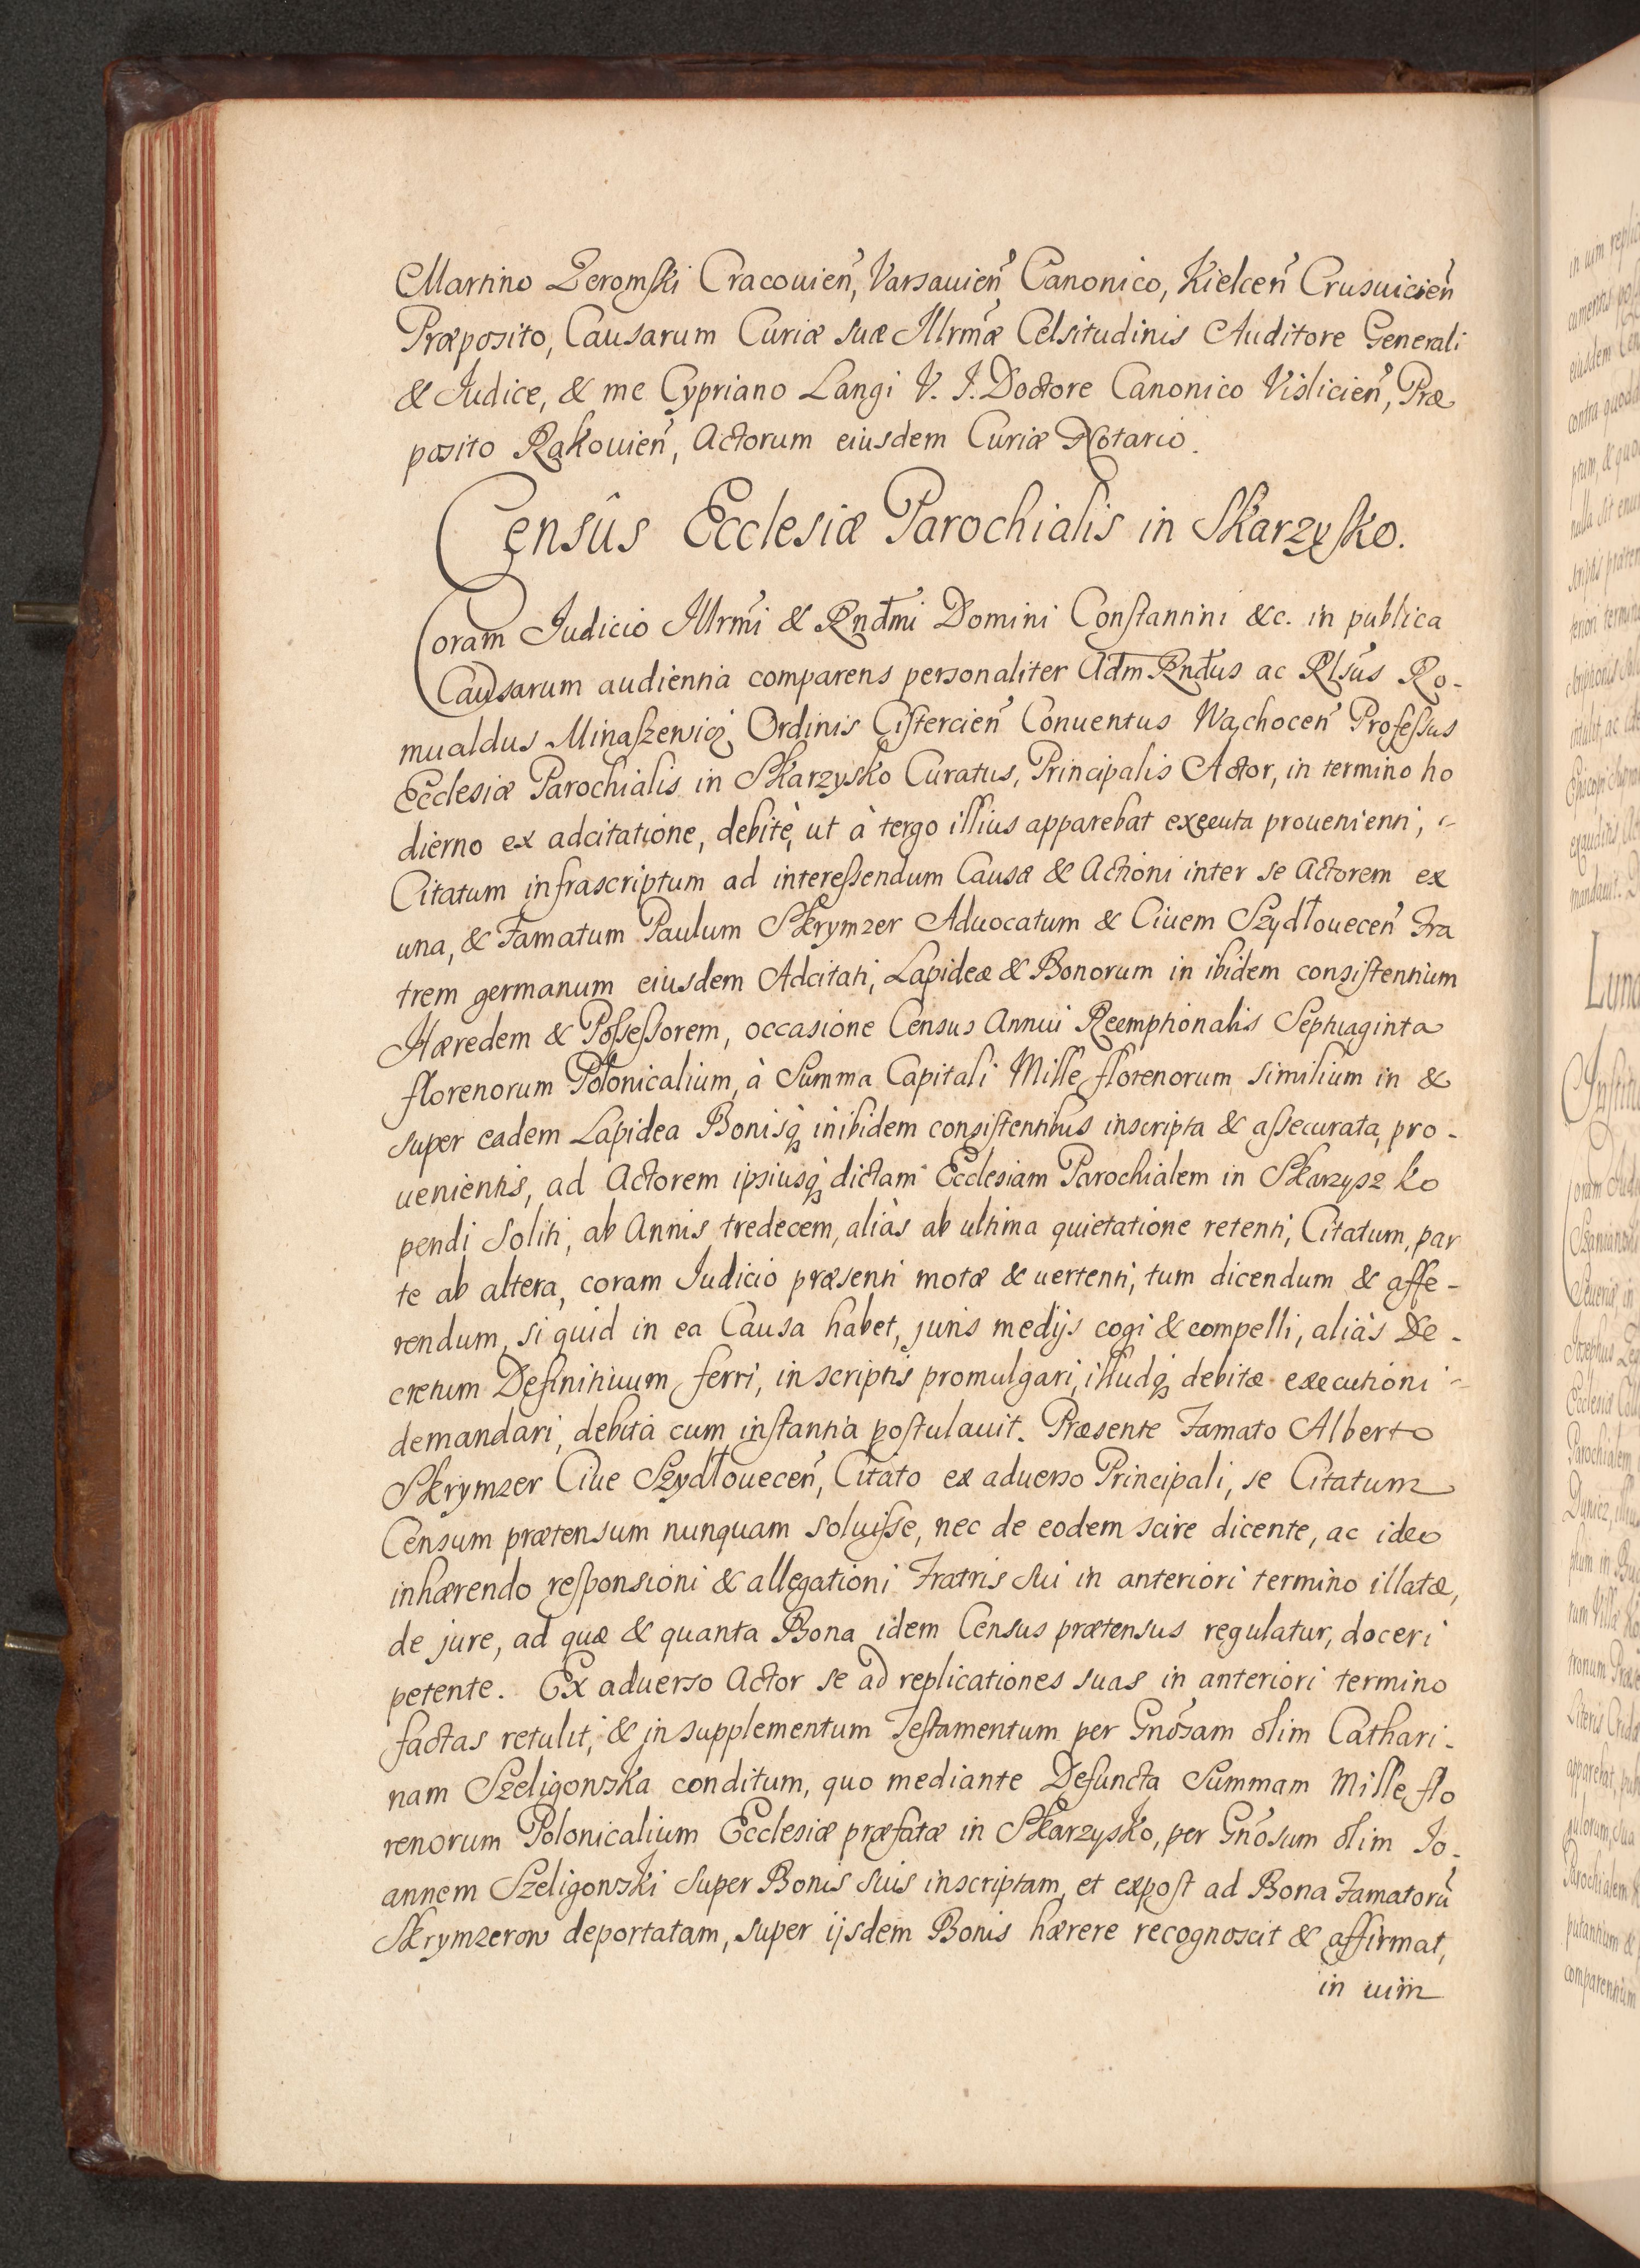 Martino Zeromski Cracouien̄, Varsauien̄ Canonico, Kielcen̄ Crusuicien̄
Præposito, Causarum Curiæ suæ Illrmæ Celsitudinis Auditore Generali
& Iudice, & me Cypriano Langi V. I. Doctore Canonico Vislicien̄, Præ
posito Rakouien̄, Actorum eiusdem Curiæ Notario.
Censûs Ecclesiæ Parochialis in Skarzysko.
Coram Iudicio Illrmi & Rndmi Domini Constantini &c. in publica
Causarum audientia comparens personaliter Adm Rndus ac Rlsus Ro-
mualdus Minaszewicz Ordinis Cistercien̄ Conuentus Wąchocen̄ Professus
Ecclesiæ Parochialis in Skarzysko Curatus, Principalis Actor, in termino ho
dierno ex adcitatione, debitè, ut à tergo illius apparebat executa prouenienti,
Citatum infrascriptum ad interessendum Causæ & Actioni inter se Actorem ex
una, & Famatum Paulum Skrymzer Aduocatum & Ciuem Szydłouecen̄ Fra
trem germanum eiusdem Adcitati, Lapideæ & Bonorum in ibidem consistentium
Hæredem & Possessorem, occasione Census Annui Reemptionalis Septuaginta
florenorum Polonicalium, à Summa Capitali Mille florenorum similium in &
super eadem Lapidea Bonisq́ inibidem consistentibus inscripta & assecurata, pro-
uenientis, ad Actorem ipsiusq́ dictam Ecclesiam Parochialem in Skarzysz ko
pendi soliti, ab Annis tredecem, aliàs ab ultima quietatione retenti, Citatum, par
te ab altera, coram Iudicio præsenti motæ & uertenti, tum dicendum & affe-
rendum, si quid in ea Causa habet, juris medijs cogi & compelli, aliàs De-
cretum Definitiuum ferri, in scriptis promulgari, illudq́ debitæ executioni
demandari, debita cum instantia postulauit. Præsente Famato Alberto
Skrymzer Ciue Szydłouecen̄, Citato ex aduerso Principali, se Citatum
Censum prætensum nunquam soluisse, nec de eodem scire dicente, ac ideo
inhærendo responsioni & allegationi Fratris sui in anteriori termino illatæ,
de jure, ad quæ & quanta Bona idem Census prætensus regulatur, doceri
petente. Ex aduerso Actor se ad replicationes suas in anteriori termino
factas retulit, & in supplementum Testamentum per Gnosam olim Cathari-
nam Szeligowska conditum, quo mediante Defuncta Summam Mille flo
renorum Polonicalium Ecclesiæ præfatæ in Skarzysko, per Gnosum olim Jo-
annem Szeligowski super Bonis suis inscriptam, et expost ad Bona Famatorū
Skrymzerow deportatam, super ijsdem Bonis hærere recognoscit & affirmat,
in uim